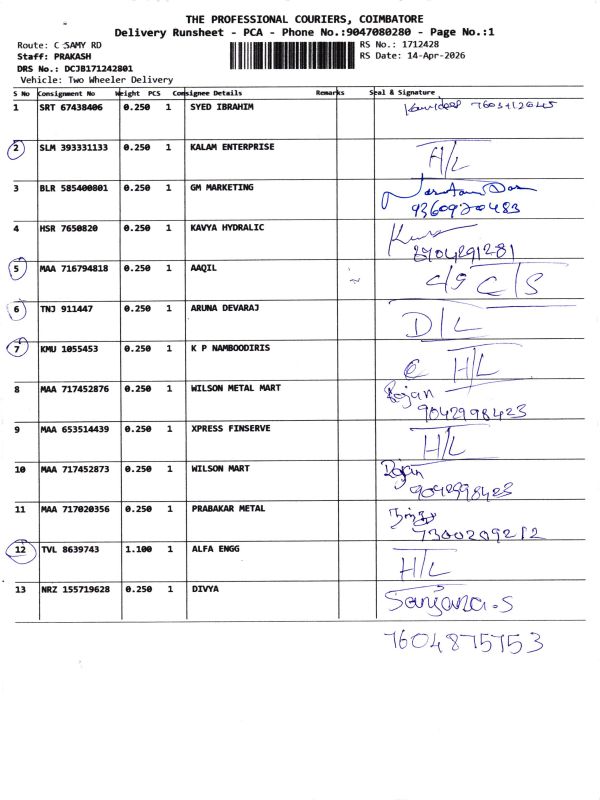 THE PROFESSIONAL COURIERS, COIMBATORE
Delivery Runsheet - PCA - Phone No.:9047080280 - Page No.:1
Route: C SAMY RD RS No.: 1712428
Staff: PRAKASH RS Date: 14-Apr-2026
DRS No.: DCJB171242801
Vehicle: Two Wheeler Delivery
S No Consignment No Weight PCS Consignee Details Remarks Seal & Signature
1 SRT 67438406 0.250 1 SYED IBRAHIM
2 SLM 393331133 0.250 1 KALAM ENTERPRISE H/L
3 BLR 585400801 0.250 1 GM MARKETING
9360920483
4 HSR 7650820 0.250 1 KAVYA HYDRALIC
5 MAA 716794818 0.250 1 AAQIL C/S
6 TNJ 911447 0.250 1 ARUNA DEVARAJ D/L
7 KMU 1055453 0.250 1 K P NAMBOODIRIS H/L
8 MAA 717452876 0.250 1 WILSON METAL MART Rajan
9042998423
9 MAA 653514439 0.250 1 XPRESS FINSERVE H/L
10 MAA 717452873 0.250 1 WILSON MART Rajan
9042998423
11 MAA 717020356 0.250 1 PRABAKAR METAL
7300209212
12 TVL 8639743 1.100 1 ALFA ENGG H/L
13 NRZ 155719628 0.250 1 DIVYA Sanjana.S
7604875753